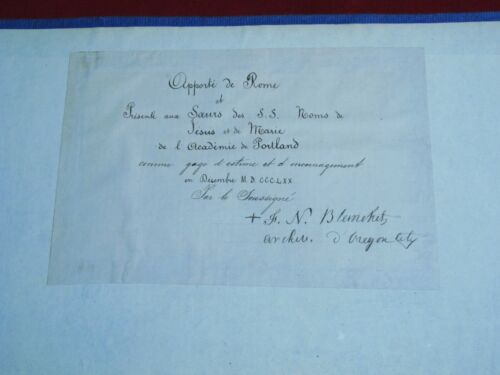 Apporté de Rome
et
Présenté aux Sœurs des S.S. Noms de
Jésus et de Marie
de l'Académie de Portland
comme gage d'estime et d'encouragement
en Décembre M.D.CCC.LXX
Par le Soussigné
+ F. N. Blanchet,
archev. d'Oregon City